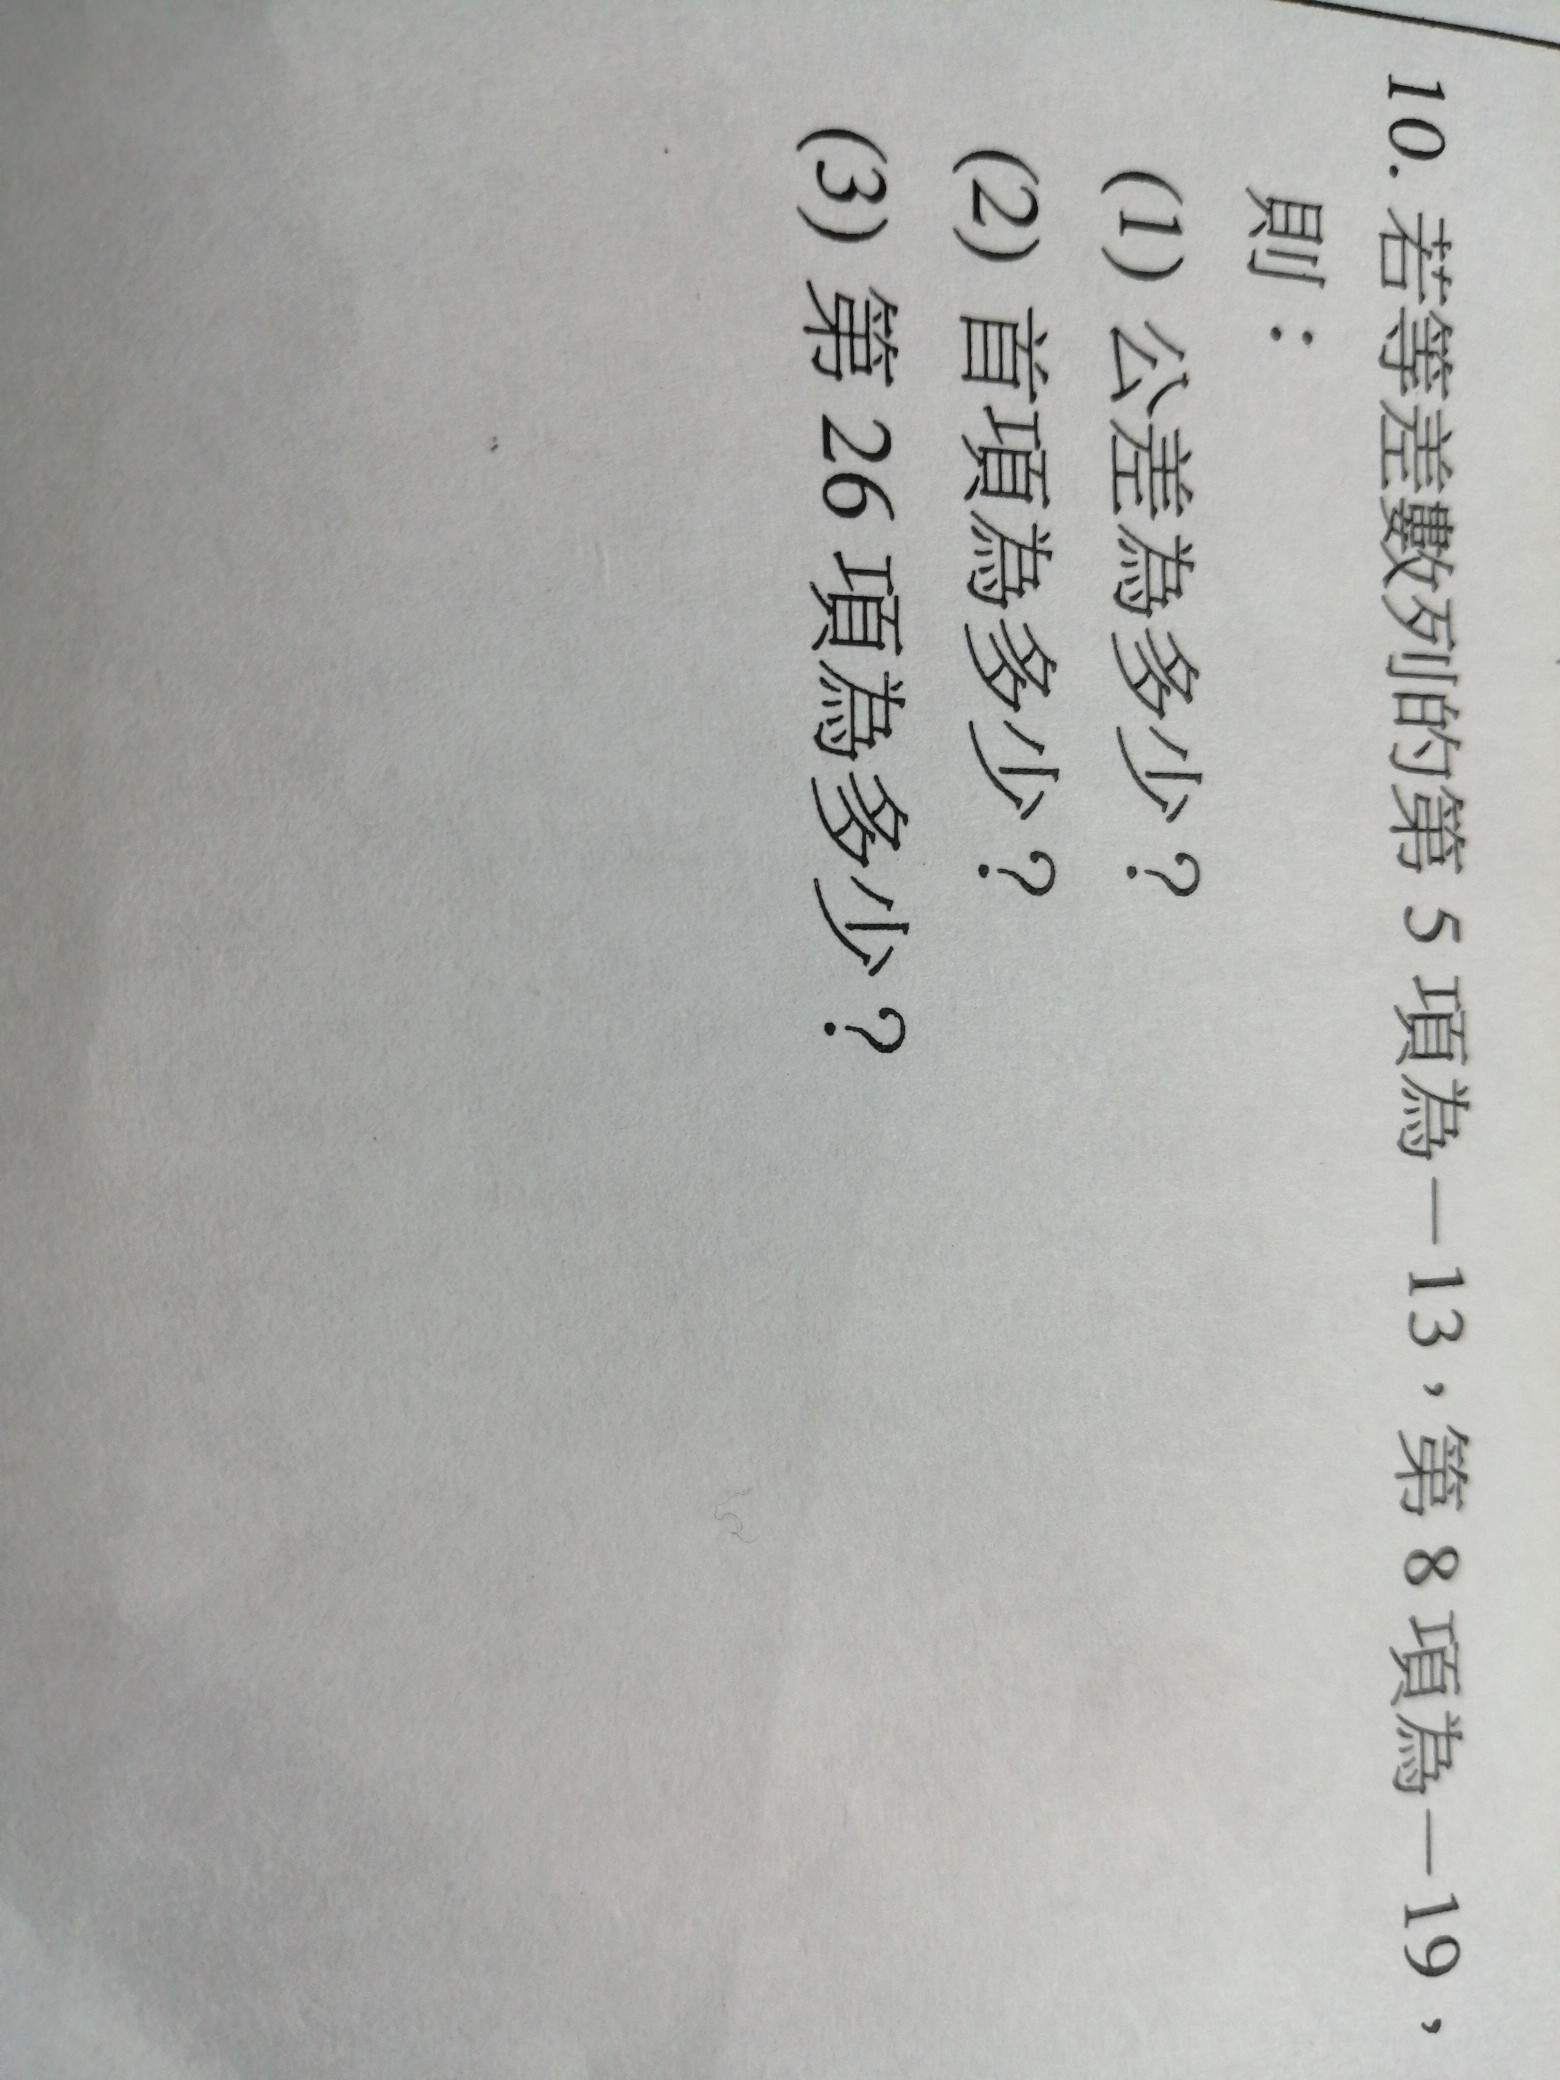 10. 若等差數列的第 5 項為－13，第 8 項為－19，
則：
(1) 公差為多少？
(2) 首項為多少？
(3) 第 26 項為多少？